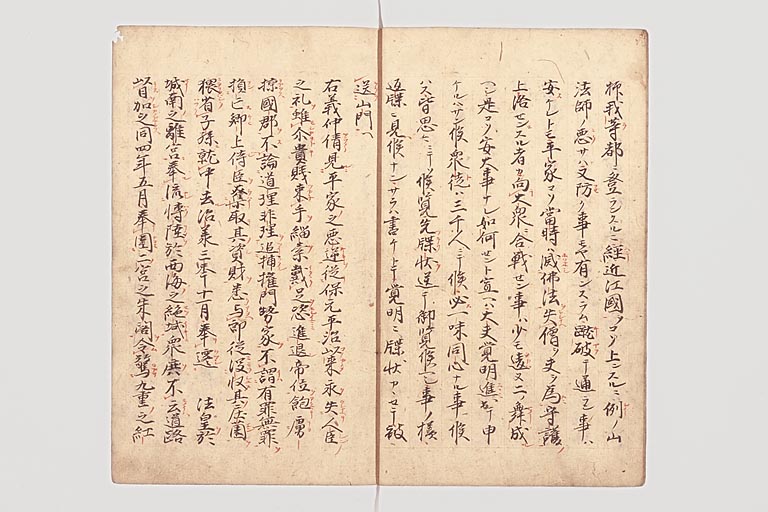 抑我等都ヘ登ランスルニ経近江國ヲコソ上ランスルニ例ノ山
法師ノ悪サハ又防ク事モヤ有ンスラム蹴破テ通ン事ハ
安ケレトモ平家コソ當時ハ滅佛法失僧ヲ夫ヲ為守護
上洛センスル者カ向大衆ニ合戦セン事少モ違又二ノ舞成
ヘシ是コソ安大事ナレ如何セント宣ヘハ大夫覚明進出テ申
ケルハサン候衆徒ハ三千人ニテ候必一味同心ナル事ハ候
ハス皆思々ニテ候覚先牒状送テ御覧候ヘシ事ノ様ハ
返牒ニ見候ナンサラハ書ケトテ覚明ニ牒状アソハセテ被
送山門ヘ
右義仲倩見平家之悪逆従保元平治以来永失人臣
之礼雖尒貴賤束手緇素戴足恣進退帝位飽虜
掠國郡不論道理非理追捕権門勢家不謂有罪無罪
損亡卿上侍臣奪取其資財悉与郎従没収其庄薗
猥省子孫就中去治承三年十一月奉遷 法皇於
城南之離宮奉流博陸於西海之絶域衆庶不云道路
以目加之同四年五月奉圍二宮之朱閤令驚九重之紅